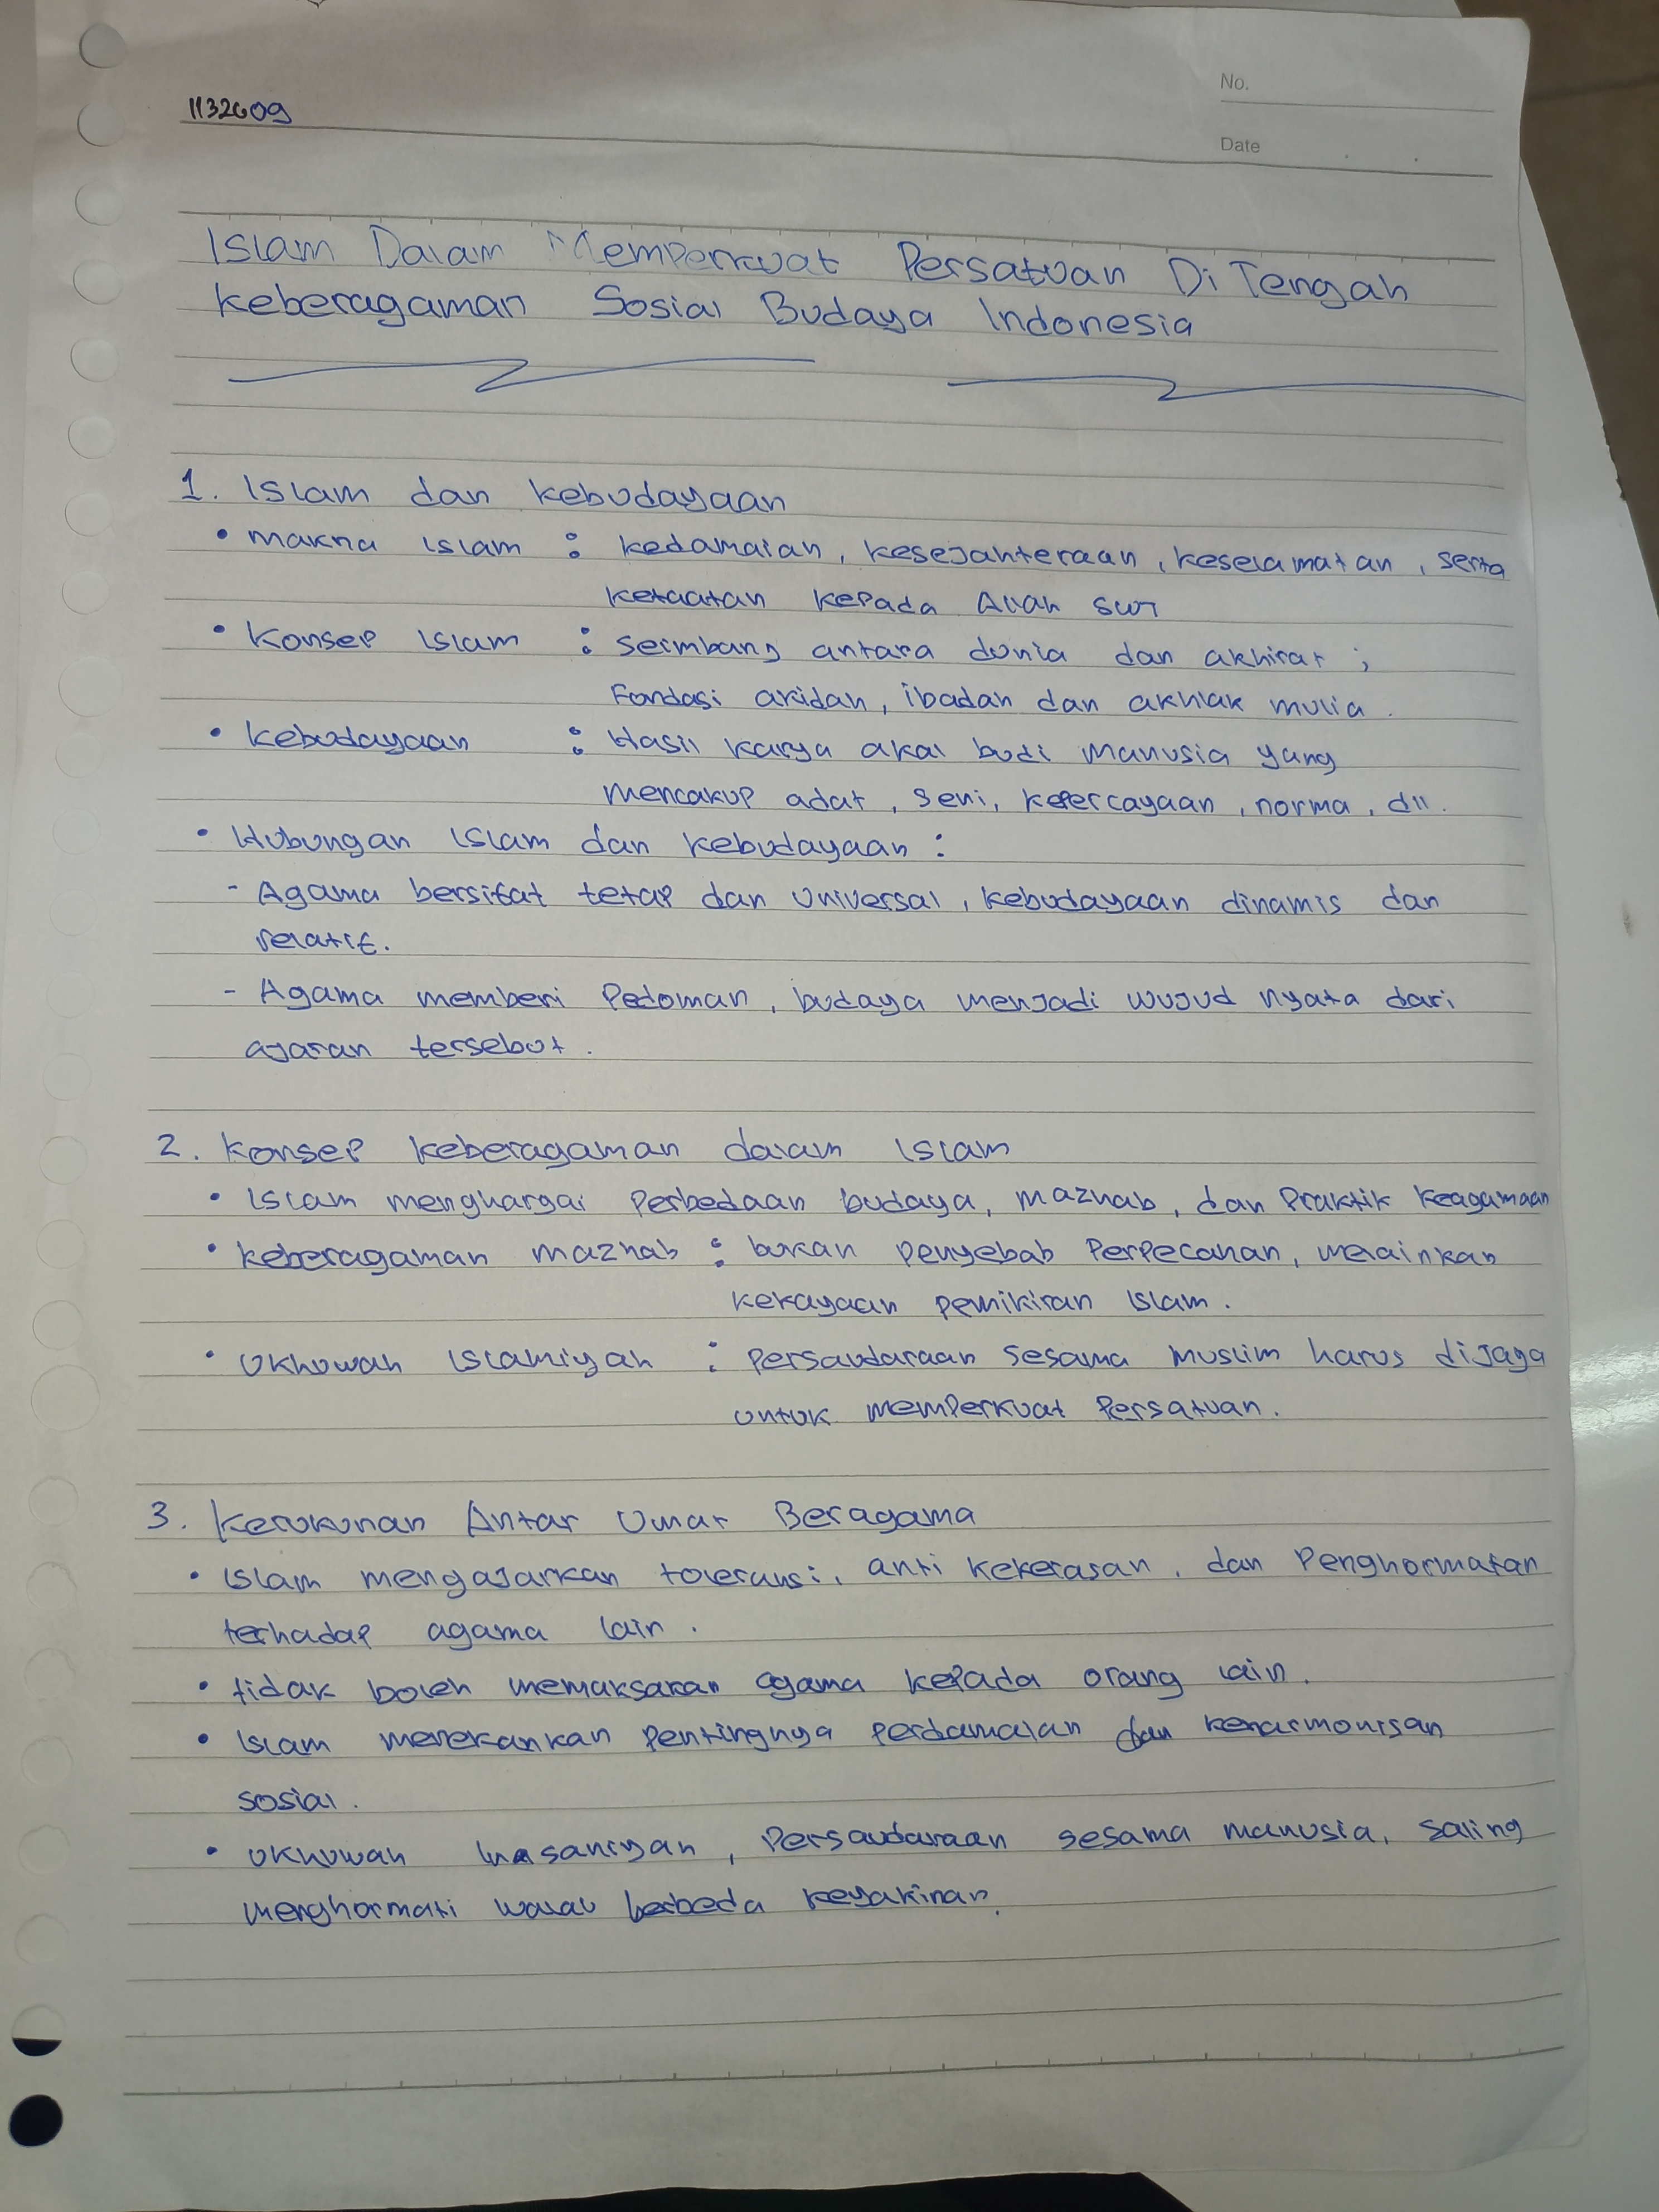 1132609
No.
Date
Islam Dalam Memperkuat Persatuan Di Tengah
Keberagaman Sosial Budaya Indonesia
1. Islam dan kebudayaan
• Makna Islam : kedamaian, kesejahteraan, keselamatan, serta
ketaatan kepada Allah SWT
• Konsep Islam : seimbang antara dunia dan akhirat ;
Fondasi akidah, ibadah dan akhlak mulia.
• Kebudayaan : Hasil karya akal budi manusia yang
mencakup adat, seni, kepercayaan, norma, dll.
• Hubungan Islam dan kebudayaan :
- Agama bersifat tetap dan universal, kebudayaan dinamis dan
relatif.
- Agama memberi Pedoman, budaya menjadi wujud nyata dari
ajaran tersebut.
2. Konsep keberagaman dalam Islam
• Islam menghargai Perbedaan budaya, mazhab, dan Praktik keagamaan
• keberagaman mazhab : bukan penyebab Perpecahan, melainkan
kekayaan pemikiran Islam.
• Ukhuwah Islamiyah : Persaudaraan sesama muslim harus dijaga
untuk memperkuat Persatuan.
3. Kerukunan Antar Umat Beragama
• Islam mengajarkan toleransi, anti kekerasan, dan Penghormatan
terhadap agama lain.
• tidak boleh memaksakan agama kepada orang lain.
• Islam menekankan Pentingnya Perdamaian dan keharmonisan
sosial.
• Ukhuwah Insaniyah, Persaudaraan sesama manusia, saling
menghormati walau berbeda keyakinan.